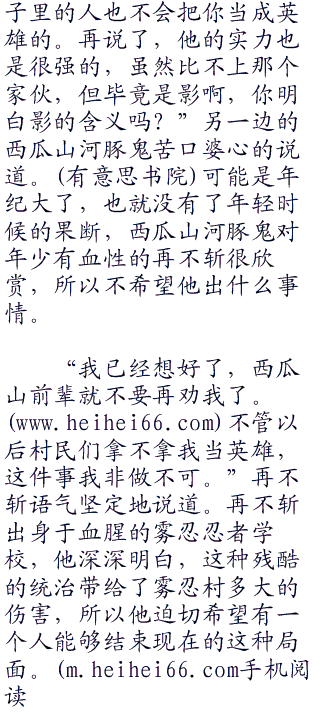 子里的人也不会把你当成英
雄的。再说了，他的实力也
是很强的，虽然比不上那个
家伙，但毕竟是影啊，你明
白影的含义吗？”另一边的
西瓜山河豚鬼苦口婆心的说
道。(有意思书院)可能是年
纪大了，也就没有了年轻时
候的果断，西瓜山河豚鬼对
年少有血性的再不斩很欣
赏，所以不希望他出什么事
情。
“我已经想好了，西瓜
山前辈就不要再劝我了。
(www.heihei66.com)不管以
后村民们拿不拿我当英雄，
这件事我非做不可。”再不
斩语气坚定地说道。再不斩
出身于血腥的雾忍忍者学
校，他深深明白，这种残酷
的统治带给了雾忍村多大的
伤害，所以他迫切希望有一
个人能够结束现在的这种局
面。(m.heihei66.com手机阅
读